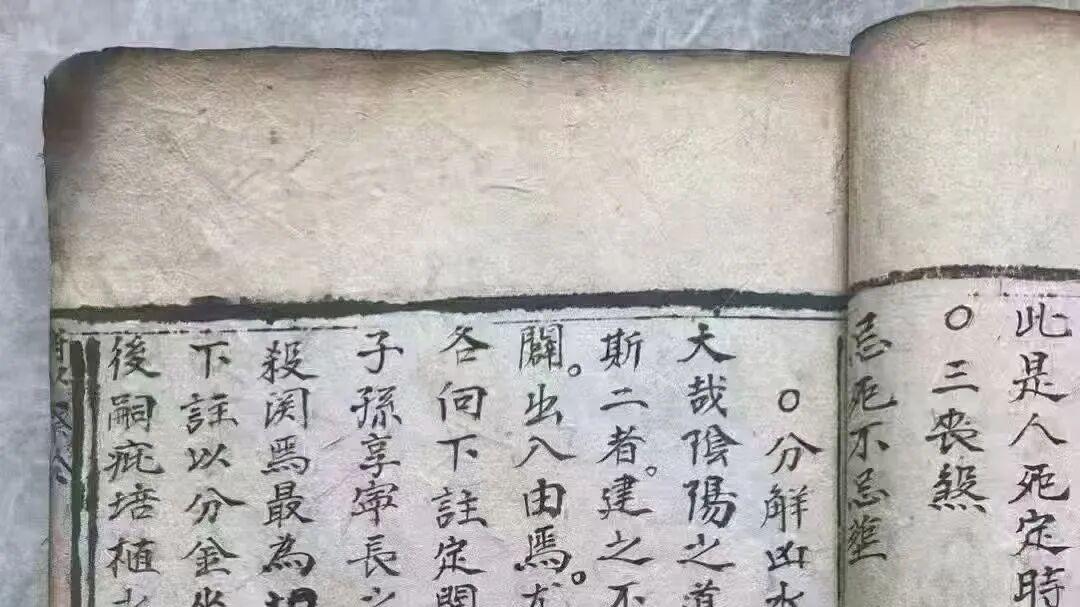 此是人死定時
〇三喪煞
忌死不忌塟
〇分解凶水
大哉陰陽之道
斯二者。建之不
闢。出入由焉。尤
各向下註定開
子孫享寧長
殺関焉最為
下註以分金坐
後嗣疵培植